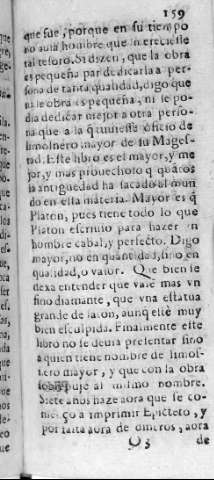 159
que fue, porque en su tiempo
no auia hombre que mereciesse
tal tesoro. Si dizen, que la obra
es pequeña par dedicarla a per-
sona de tanta qualidad, digo que
ni le obra es pequeña, ni se po-
dia dedicar mejor a otra perso-
na que a la q̃ tuuiesse oficio de
limosnero mayor de su Mages-
tad. Este libro es el mayor, y me
jor, y mas prouechoso q̃ quãtos
la antiguedad ha sacado al mun
do en esta materia. Mayor es q̃
Platon, pues tiene todo lo que
Platon escriuio para hazer vn
hombre cabal, y perfecto. Digo
mayor, no en quantidad, sino en
qualidad, o valor. Que bien se
dexa entender que vale mas vn
fino diamante, que vna estatua
grande de laton, aunq̃ estè muy
bien esculpida. Finalmente este
libro no se deuia presentar sino
a quien tiene nombre de limos-
nero mayor, y que con la obra
sobrepuje al mismo nombre.
Siete años haze aora que se co-
menço a imprimir Epicteto, y
por falta aora de dineros, aora
O 3 de